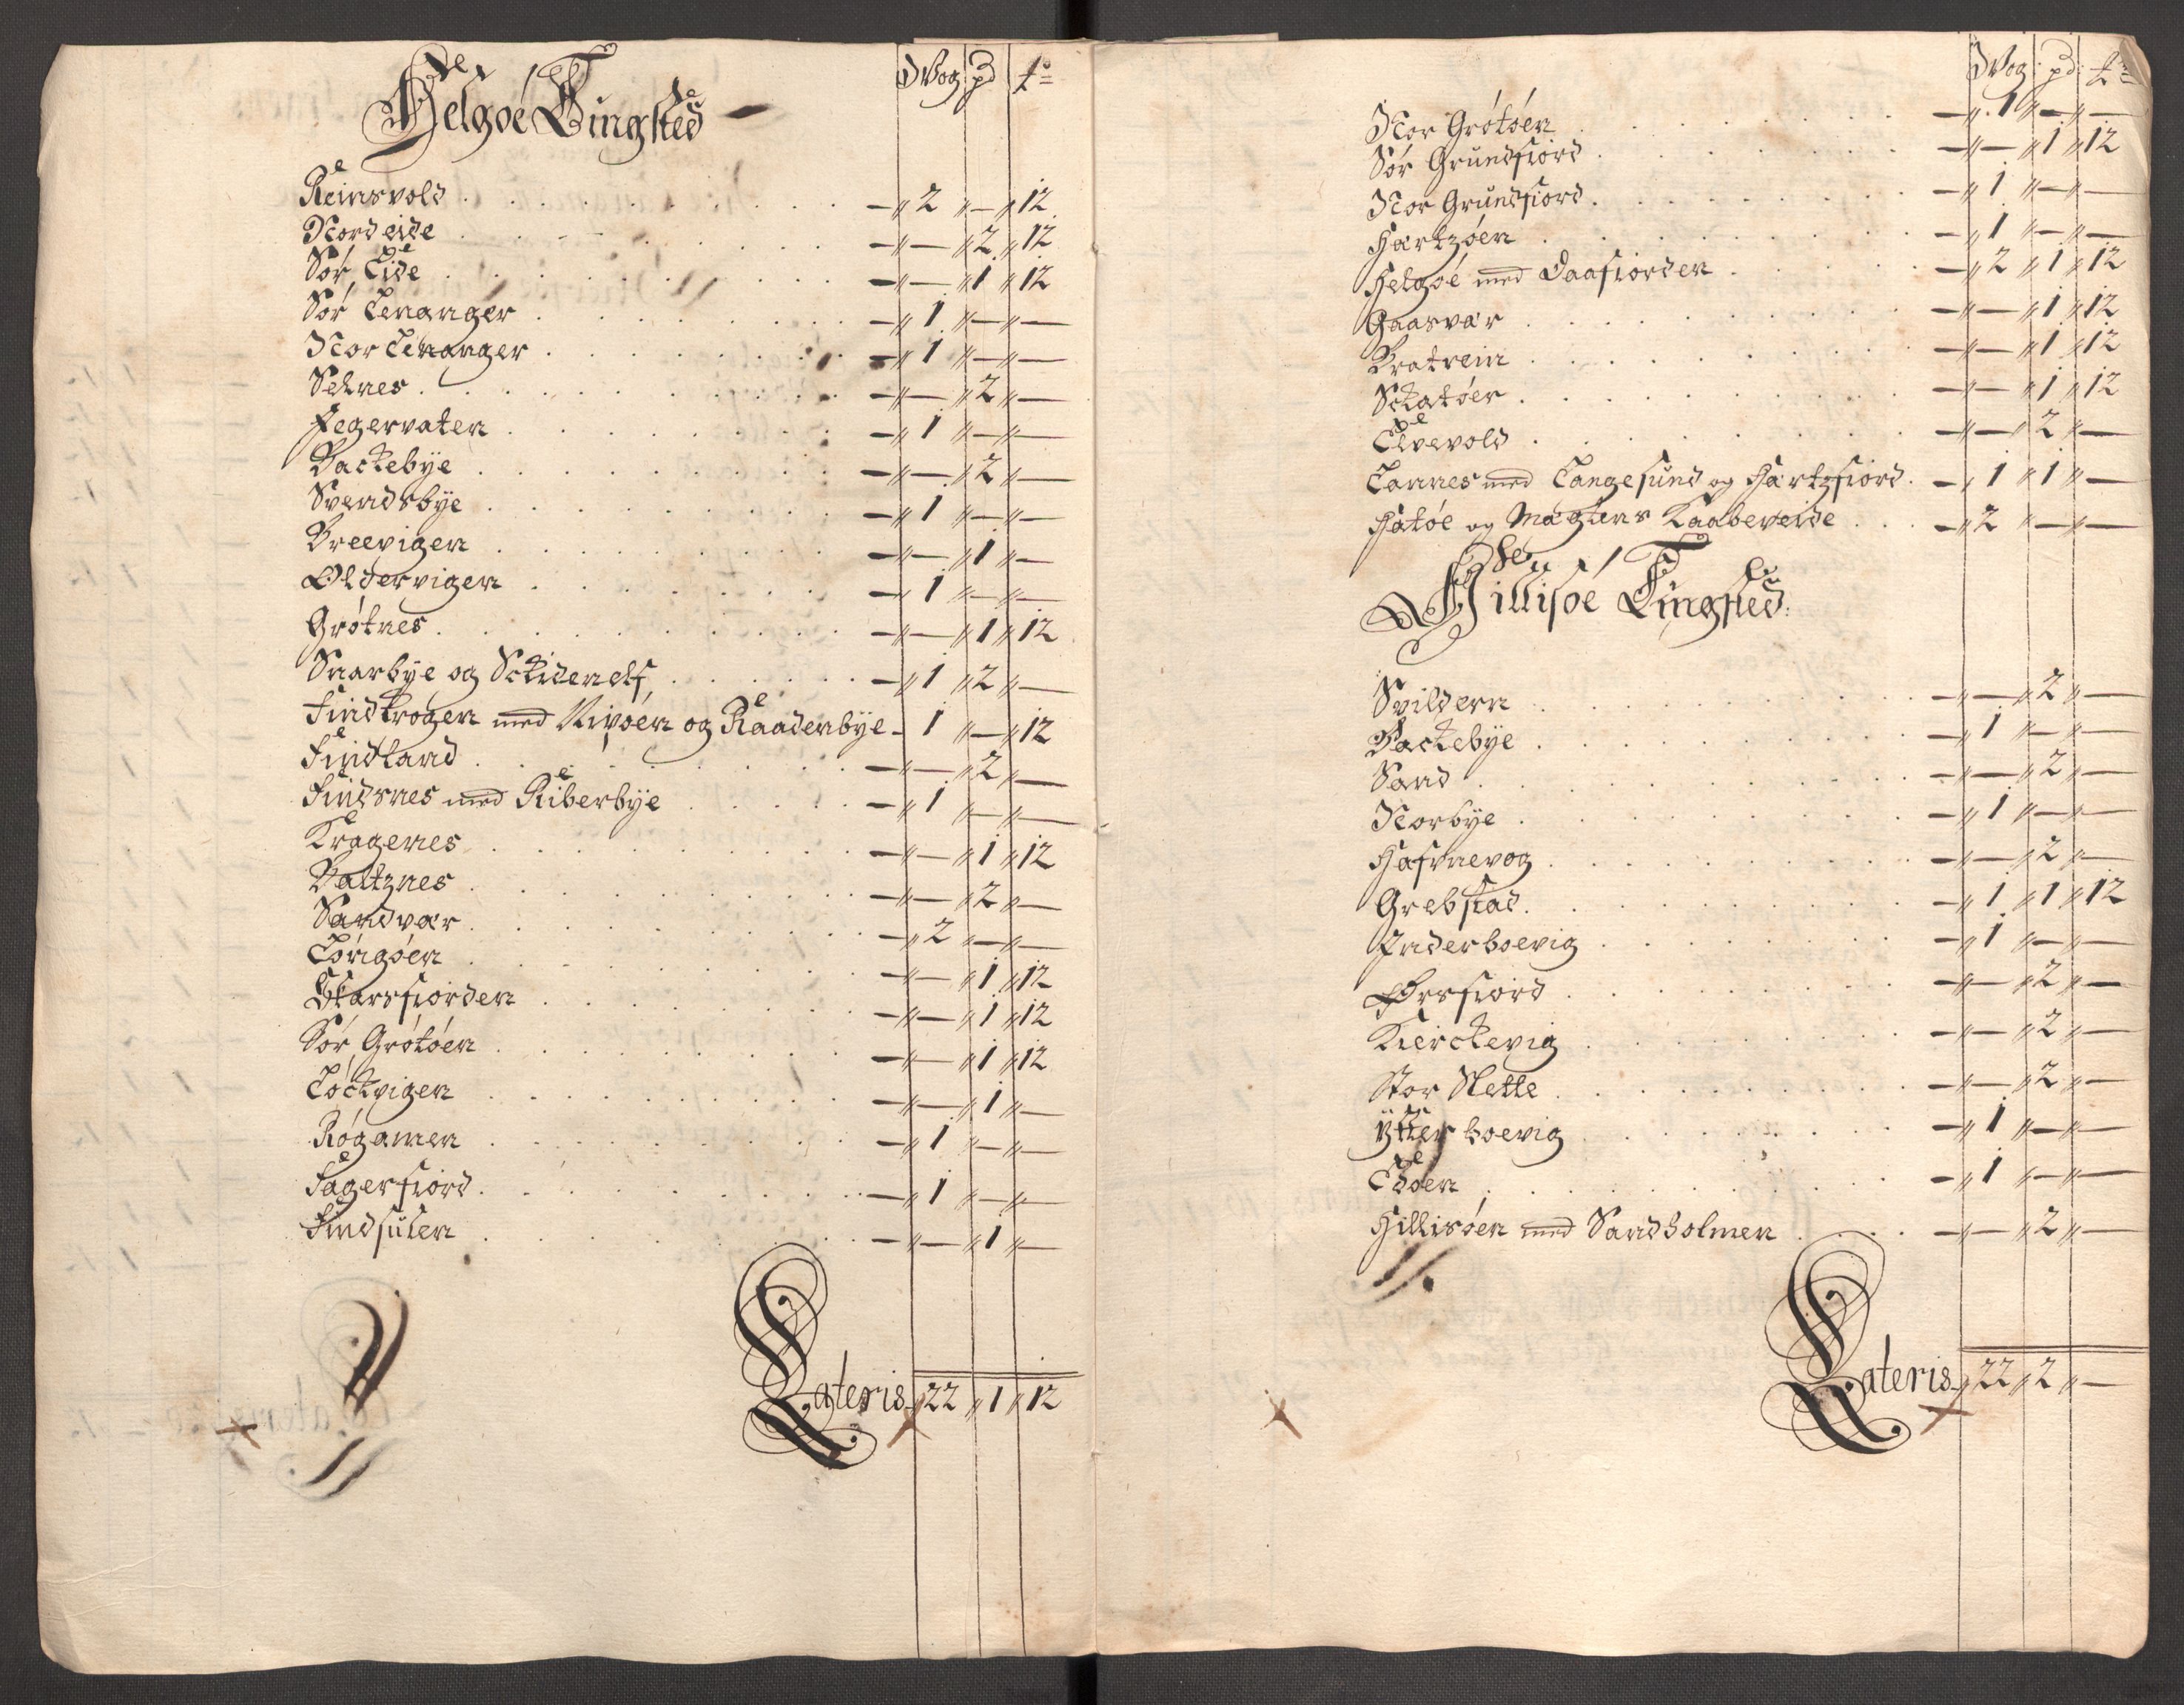 Helgøe Tingsted
Wog pd ℔
Reinsvold . . . 2 " — " 12
Nordeide . . . — " 2 " 12
Sør Eide . . . — " 1 " 12
Sør Lenanger . . . 1 " — " —
Nor Lenanger . . . 1 " — " —
Selnes . . . — " 2 " —
Jegervaten . . . 1 " — " —
Backebÿe . . . — " 2 " —
Svendsbÿe . . . 1 " — " —
Breevigen . . . — " 1 " —
Oldervigen . . . 1 " — " —
Grøtnes . . . — " 1 " 12
Snarbÿe og Sckidenelf . . . 1 " 2 " —
Findkrogen med Vivøen og Raadenbÿe - 1 " — " 12
Findland . . . — " 2 " —
Findsnes med Riberbÿe . . . 1 " — " —
Kragenes . . . — " 1 " 12
Baltznes . . . — " 2 " —
Sandvær . . . 2 " — " —
Løngøen . . . — " 1 " 12
Skarsfiorden . . . — " 1 " 12
Sør Grøtøen . . . — " 1 " 12
Løckvigen . . . — " 1 " —
Røgamen . . . 1 " — " —
Fagerfiord . . . 1 " — " —
Findsulen . . . — " 1 " —
Lateris 22 " 1 " 12
Wog pd ℔
Nor Grøtøen . . . 1 " — " —
Sør Grundfiord . . . — " 1 " 12
Nor Grundfiord . . . 1 " — " —
Hartzøen . . . 1 " — " —
Helgøe med Daafiorden . . . 2 " 1 " 12
Gaasvær . . . — " 1 " 12
Bratrein . . . — " 1 " 12
Sckatøer . . . — " 1 " 12
Elvevold . . . — " 2 " —
Lannes med Langesund og Hartzfiord . 1 " 1 " —
Hatøe og Magens Kaabeveide . . . 2 " — " —
Hillisøe Tingsted
Spildern . . . — " 2 " —
Backebÿe . . . 1 " — " —
Sand . . . — " 2 " —
Norbÿe . . . 1 " — " —
Hafnevog . . . — " 2 " —
Grebstad . . . 1 " 1 " 12
Inderboevig . . . 1 " — " —
Ørsfiord . . . — " 2 " —
Kierckevig . . . — " 2 " —
Stor Slette . . . — " 2 " —
Ÿtter boevig . . . 1 " — " —
Edøen . . . 1 " — " —
Hillisøen med Sandholmen . . . — " 2 " —
Lateris 22 " 2 " —